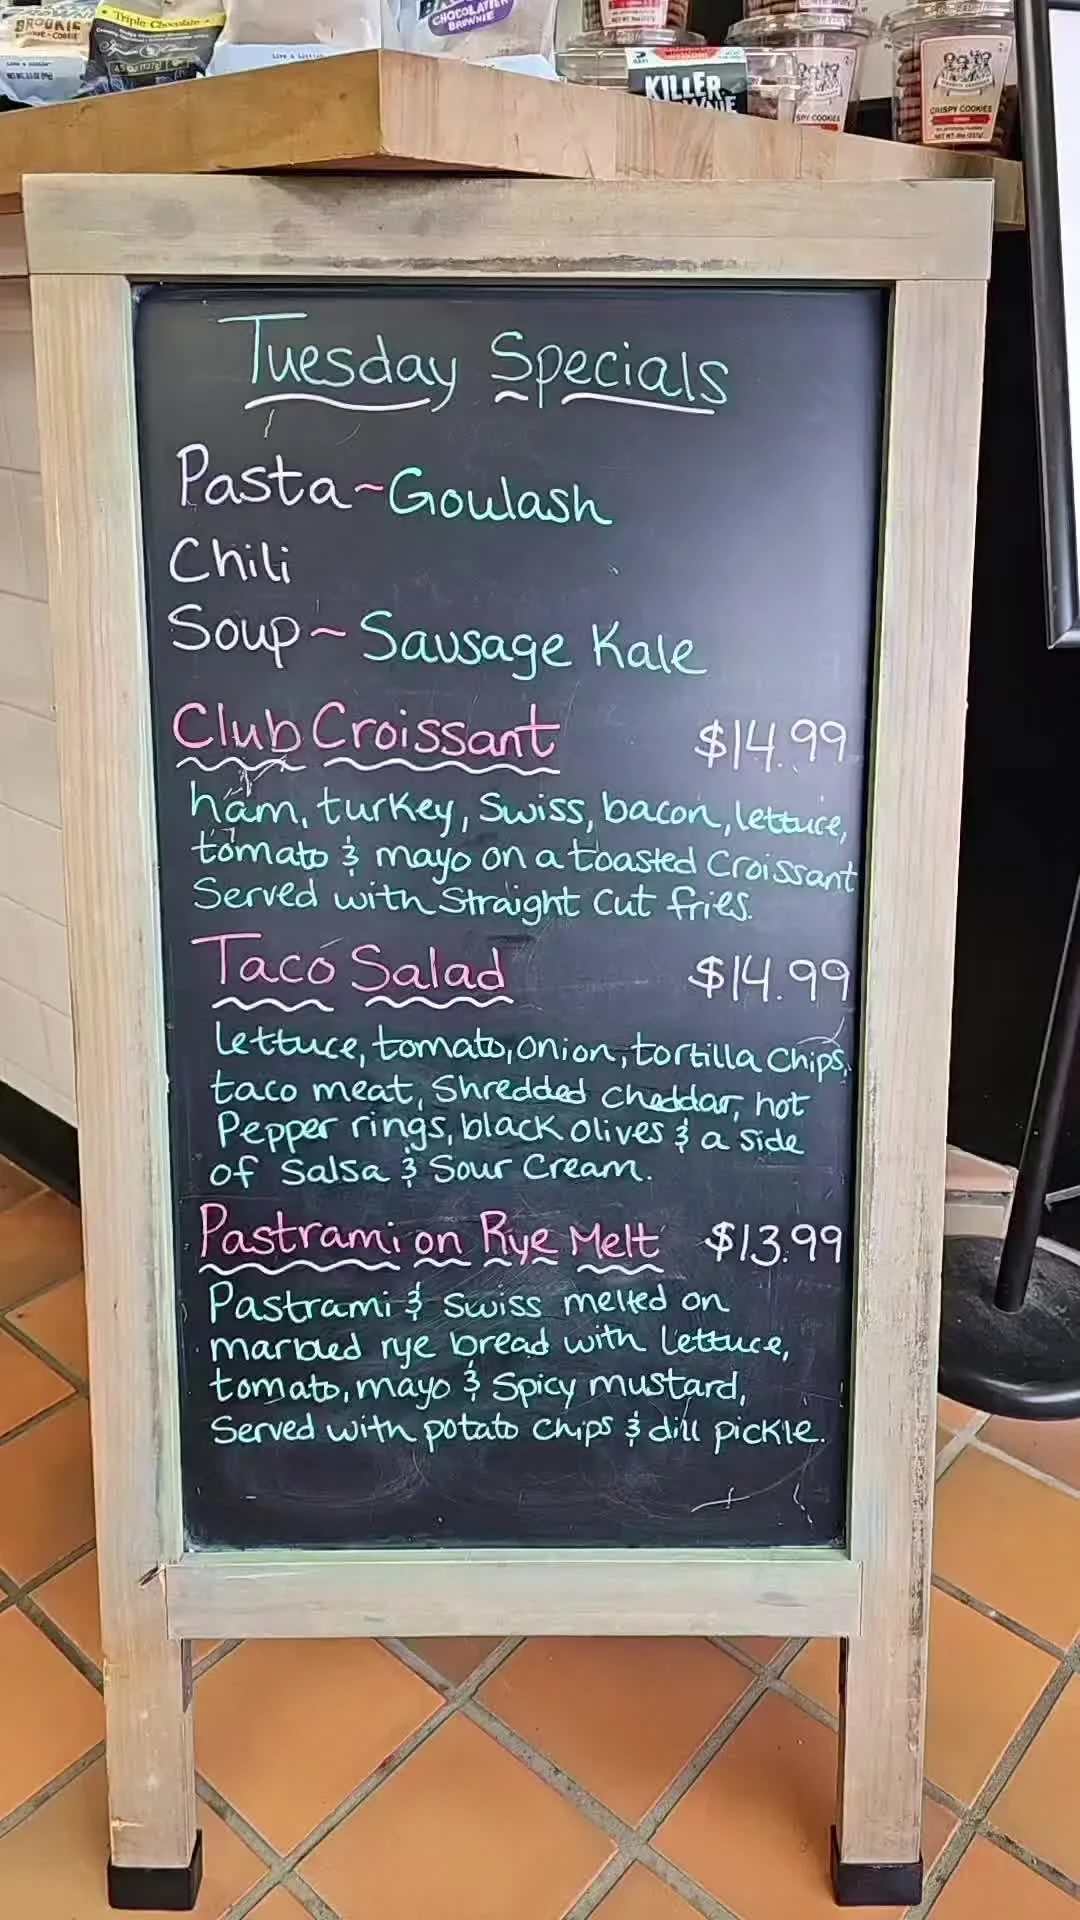 BROOKIE
Triple Chocolate
CHOCOLATIER
BROWNIE
KILLER
SPY COOKIES
CRISPY COOKIES
Tuesday Specials
Pasta ~ Goulash
Chili
Soup ~ Sausage Kale
Club Croissant $14.99
ham, turkey, Swiss, bacon, lettuce,
tomato & mayo on a toasted Croissant
Served with Straight Cut fries.
Taco Salad $14.99
lettuce, tomato, onion, tortilla chips,
taco meat, Shredded cheddar, hot
Pepper rings, black olives & a side
of Salsa & Sour Cream.
Pastrami on Rye Melt $13.99
Pastrami & Swiss melted on
marbled rye bread with lettuce,
tomato, mayo & Spicy mustard,
Served with potato chips & dill pickle.